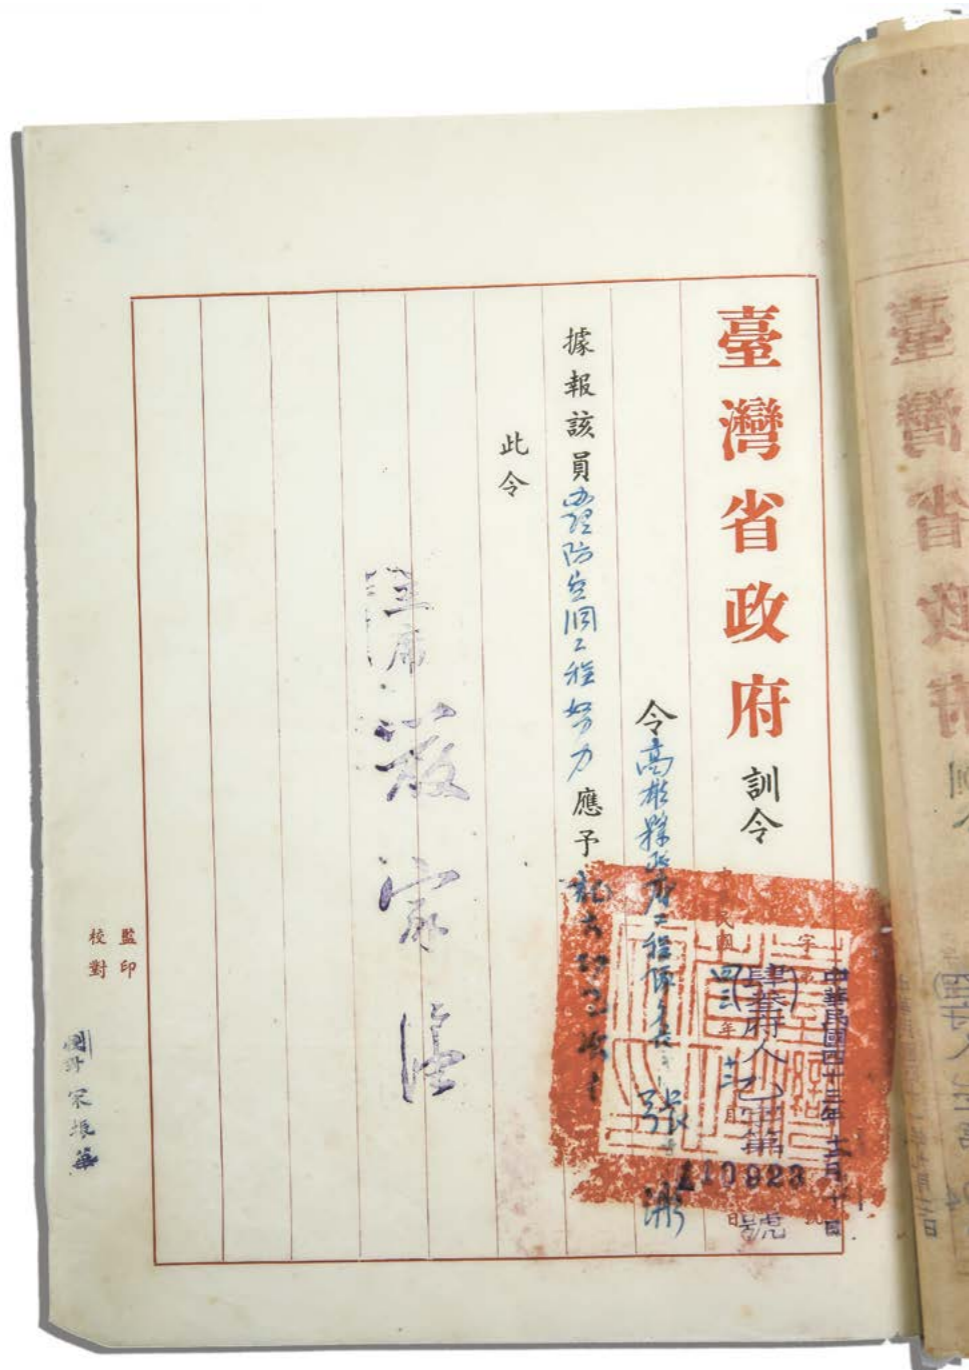 臺灣省政府訓令
中華民國四十三年十二月十日
(肆叁)府人乙字第110923號
令高雄縣政府工程師兼 張 淅
據報該員辦理防空洞工程努力應予記大功一次
此令
主席 嚴家淦
監印
校對 宋振華